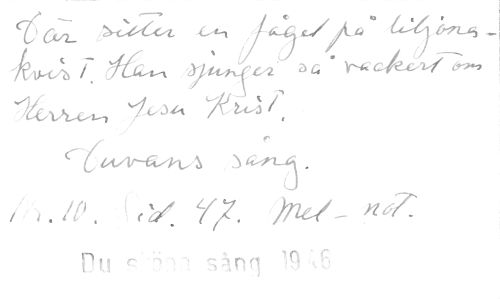 Där sitter en fågel på liljone-
kvist. Han sjunger så vackert om
Herren Jesu Krist.
Duvans sång.
Nr. 10. Sid. 47. Mel-not.
Du sköna sång 1946